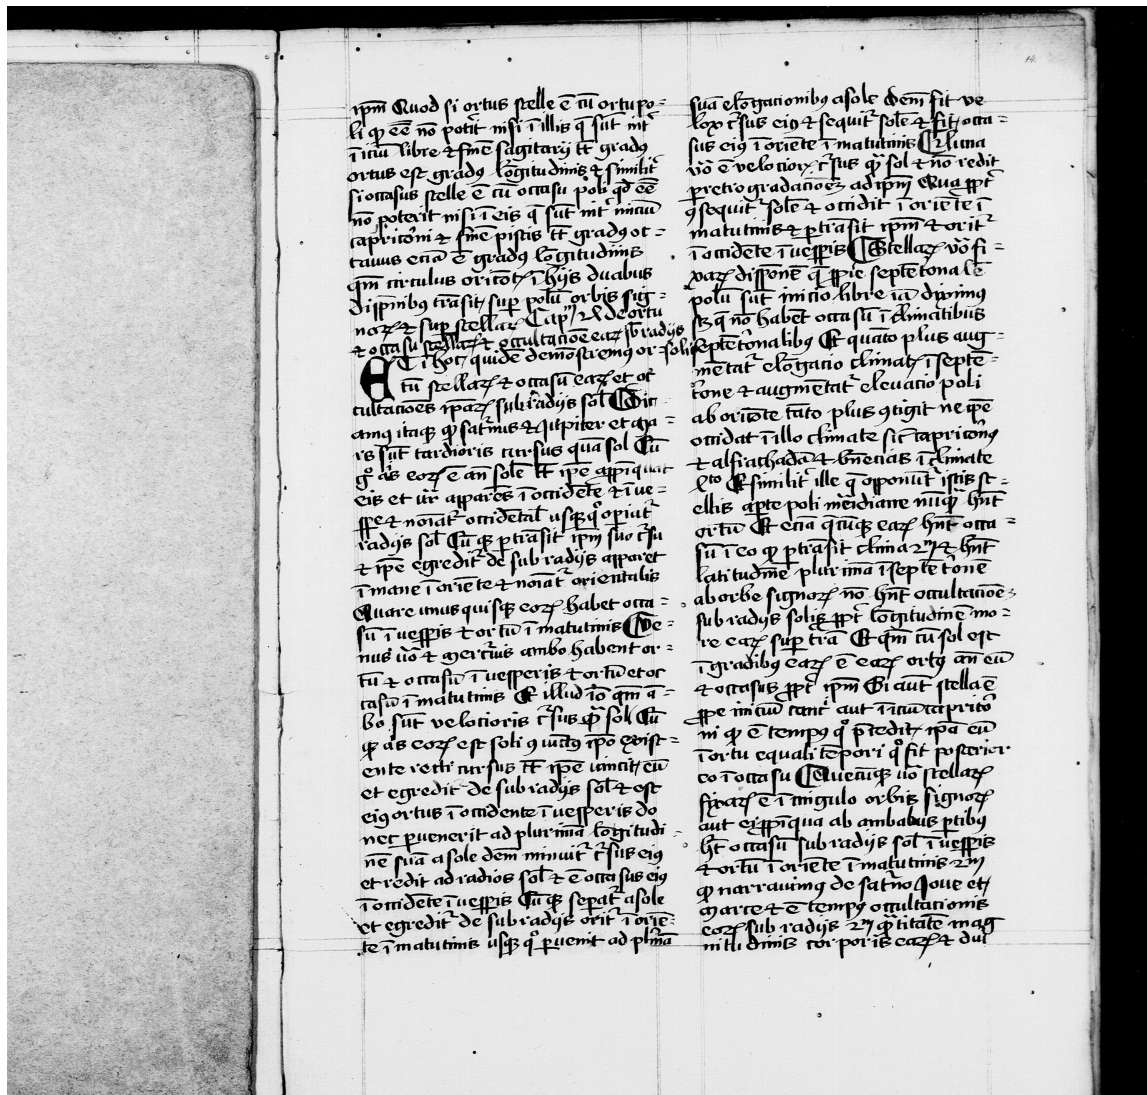 ip̄m Quod si ortus stelle ē cū ortu po-
li qđ eē nō potit̉ nisi ī illis q̄ sūt int̉
īitiū libre & finē sagitarij tc̄ gradꝰ
ortus est gradꝰ lōgitudinis & similit̉
si occasus stelle ē cū occasu poli qđ eē
nō poterit nisi ī eis q̄ sūt int̉ iniciū
capricōni & finē piscis tc̄ gradꝰ oc-
tauus eciā ē gradꝰ lōgitudinis
qm̄ circulus orizōtꝭ ī hijs duabus
disp̄nibꝰ trāsit sup̱ polū orbis sig-
noꝝ & sup̱ stellaꝝ Cap̄m de ortu
& occasu stellaꝝ & occultacioē eaꝝ sb̄ radijs
solis
ET ī hoc quidē demōstremꝰ or-
tū stellaꝝ & occasū eaꝝ et oc̄
cultacioēs ip̄aꝝ sub radijs sol̄ Dic-
amꝰ itaqꝫ qđ sat̉nus & Iupiter et ma-
rs sūt tardioris cursus quā sol Cū
g̊ aꝰs eoꝝ ē an̄ solē tc̄ ip̄e app̱īquat
eis et ur̄ apparēs ī occidēte & ī ue-
sp̱e & noīat̉ occidētal̄ usqꝫ q̊ op̱iat̉
radijs sol̄ Cū qꝫ p̱trāsit ip̄m suo c̉su
& ip̄e egredit̉ de sub radijs apparet
ī mane ī oriēte & noīat̉ orientalis
Quare unusquisqꝫ eoꝝ habet occa-
sū ī uesp̱is & ortū ī matutinis Ue-
nus ūo & merc̉ius ambo habent or-
tū & occasū ī uesperis & ortū et oc
casū ī matutinis Et illud iō qm̄ ā-
bo sūt velocioris c̉sus qꝫ sol Cū
qꝫ aꝰs eoꝝ est soli ꝯiūctꝰ ip̄o exist-
ente recti cursus tc̄ ip̄e uincit eū
et egredit̉ de sub radijs sol̄ & est
eiꝰ ortus ī occidente ī uesperis do
nec p̱uenerit ad plurimā lōgitudi-
nē suā a sole dem̄ minuit̉ c̉sus eiꝰ
et redit ad radios sol̄ & ē occasus eiꝰ
ī occidēte ī uesp̱is Cū qꝫ sep̱at̉ a sole
et egredit̉ de sub radijs orit̉ ī oriē-
te ī matutinis usqꝫ q̊ p̱uenit ad pl̉imā
suā elōgacionibꝰ a sole dem̄ fit ve
lox c̉sus eiꝰ & sequit̉ solē & fit occa-
sus eiꝰ ī oriēte ī matutinis Luna
ūo ē velocior̄ c̉sus qꝫ sol & nō redit
p̱ retrogradacioēꝫ ad ip̄m Qua p̱pt̉
ꝯsequit̉ solē & occidit ī oriēte ī
matutinis & p̱trāsit ip̄m & orit̉
ī occidēte ī uesp̱is Stellaꝝ ūo fi-
xaꝝ disp̄onē q̄ p̱pie septētōnalē
polū sūt inicio libre iā diximꝰ
sꝫ q̄ nō habēt occasū ī climatibus
septētōnalibus Et quāto plus aug-
mētat̉ elōgacio climatꝭ ī septē-
t̉one & augmētat̉ eleuacio poli
ab orizōte tāto plus ꝯtigit ne ip̄e
occidat ī illo climate sic̄ capricōnꝰ
& alfrathadā & ī climate
xto Et similit̉ ille q̄ opponūt̉ istis st-
ellis a p̱te poli m̄idiane nūqꝫ hn̄t
ortū Et eciā q̄cūqꝫ eaꝝ hn̄t occa-
sū ī eo qđ p̱trāsit clima 2m̄ & hn̄t
latitudinē plurimā ī septēt̉onē
ab orbe signoꝝ nō hn̄t occultacioēꝫ
sub radijs solis p̱pt̉ lōgitudinē mo-
re eaꝝ sup̱ t̉rā Et qm̄ cū sol est
ī gradibus eaꝝ ē eaꝝ ortꝰ an̄ eū
& occasus p̱pt̉ ip̄m Si aut̄ stella ē
p̱pe iniciū canc̉ aut īitiū capricō
ni qđ ē tempꝰ q̊ p̄cedit ip̄a eū
ī ortu equali tēpori q̊ fit posterior
eo ī occasu Quecūqꝫ ūo stellaꝝ
fixaꝝ ē ī cingulo orbis signoꝝ
aut ei p̱pīqua ab ambabus p̱tibꝰ
hn̄t occasū sub radijs sol̄ ī uesp̱is
& ortū ī oriēte ī matutinis 2m̄
qđ narrauimꝰ de sat̉no Ioue et
marte & ē tempꝰ occultacionis
eoꝝ sub radijs 2m̄ qꝫtitatē mag
nitudinis corporis eaꝝ & dui